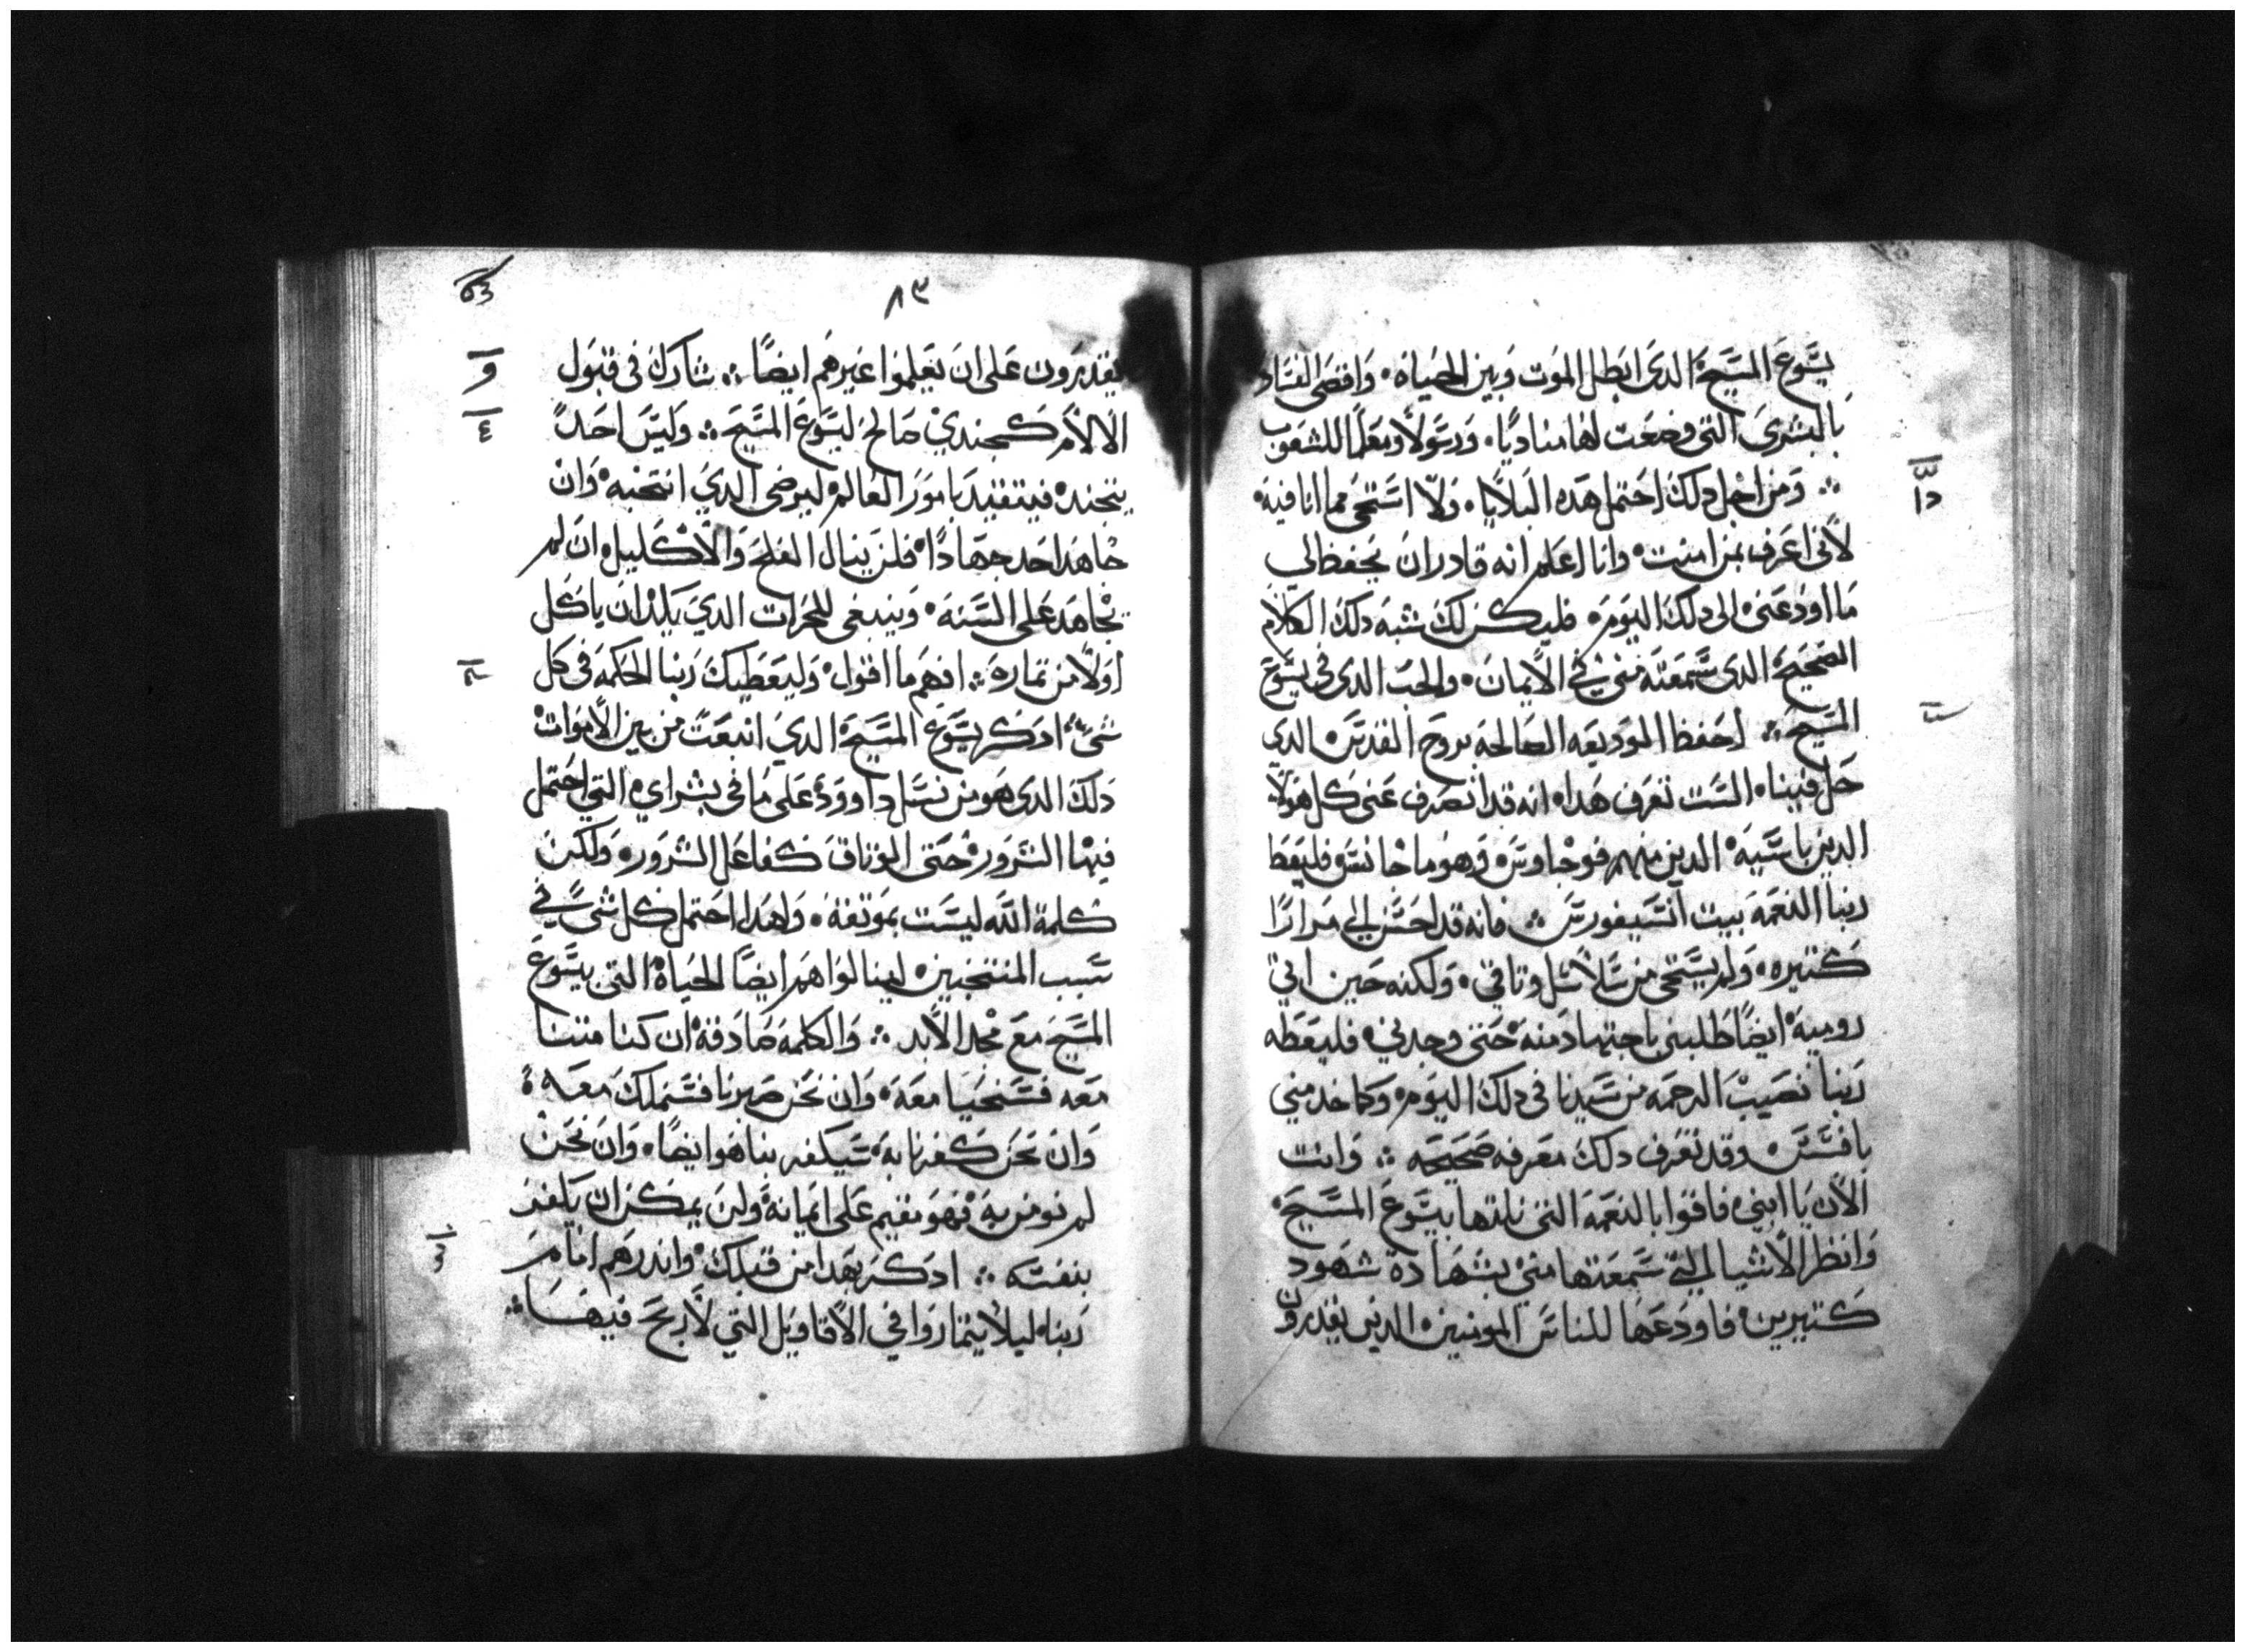 يسوع المسيح الدى ابطل الموت وبين الحياه، واقصى الفساد
بالبشرى التى وضعت لها مناديًا، ورسولًا ومعلمًا للشعوب
ومن اجل دلك احتمل هده البلايا، ولا استحى مما انا فيه
لانى اعرف بمن امنت، وانا اعلم انه قادر ان يحفظ لي
ما اودعنى الى دلك اليوم، فليكن لك شبه دلك الكلام
الصحيح الدى سمعته منى في الايمان، والحب الدى في يسوع
المسيح، احفظ الوديعه الصالحه بروح القدس الدي
حل فينا، الست تعرف هدا، انه قد انصرف عنى كل هولا
الدين باسيه، الدين منهم فوجلوس، وهرماجانس، فليعط
ربنا النعمه بيت انسيفورس، فانه قد احسن الي مرارًا
كتيره، ولم يستحى من سلاسل وتاقي، ولكنه حين اتي
روميه ايضًا طلبنى باجتهاد منه حتى وجدني، فليعطه
ربنا نصيب الرحمه من سيدنا فى دلك اليوم، وكما خدمني
بافسس، وقد تعرف دلك معرفه صحيحه، وانت
الان يا ابنى، فاقوا بالنعمه التى نلتها بيسوع المسيح،
وانظر الاشيا التى سمعتها منى، بشهادة شهود
كتيرين، فاودعها للناس المومنين، الدين يقدرون
٨٣
يقدرون على ان يعلموا غيرهم ايضًا، شارك فى قبول
الالام كجندي صالح ليسوع المسيح، وليس احد
يتجند، فيتقيد بامور العالم، ليرضى الدي انتخبه، وان
جاهد احد جهادًا، فلن ينال الفلج والاكليل، ان لم
يجاهد على السنه، وينبغى للحرات الدي يكد ان ياكل
اولًا من تماره، افهم ما اقول، وليعطيك ربنا الحكمه فى كل
شى، ادكر يسوع المسيح الدي انبعت من بين الاموات
دلك الدى هو من نسل داوود، على ما فى بشراي، التي احتمل
فيها الشرور، حتى الوتاق كفاعل الشرور، ولكن
كلمة الله ليست بموتقة، ولهدا احتمل كل شى في
سبب المنتخبين، لينالوا هم ايضًا الحياة، التى بيسوع
المسيح مع مجد الابد، والكلمه صادقة، ان كنا متنا
معه فسنحيا معه، وان نحن صبرنا فسنملك معه،
وان نحن كفرنا به، سيكفر بنا هو ايضًا، وان نحن
لم نومن به، فهو مقيم على ايمانه، ولن يمكن ان يكفر
بنفسه، ادكر بهدا من قبلك، واندرهم امام
ربنا، ليلا يتماروا في الاقاويل التي لا ربح فيها